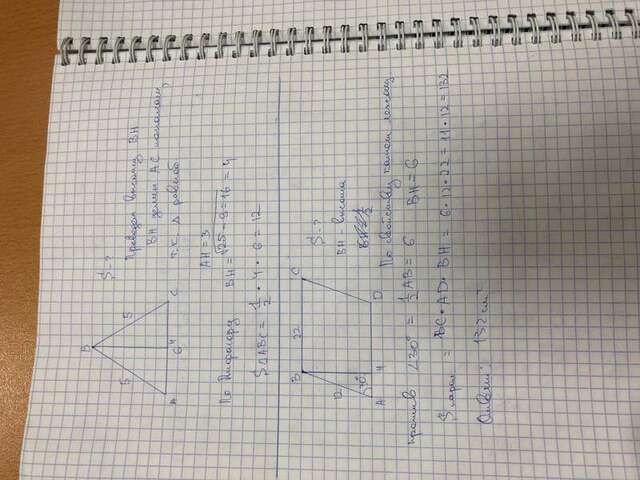 S - ?
Проведем высоту BH
BH делит AC пополам,
т.к. Δ равноб
B
5
5
A
6
H
C
AH = 3
По Пифагору BH = √25 - 9 = 16 = 4
S ΔABC = 1/2 • 4 • 6 = 12
S - ?
BH - высота
B
22
C
30°
A
H
D
По свойству катет лежащ
против ∠30° = 1/2 AB = 6 BH = 6
S пар = BC • AD • BH = 6 • 12 • 22 = 11 • 12 = 132
Ответ: 132 см²